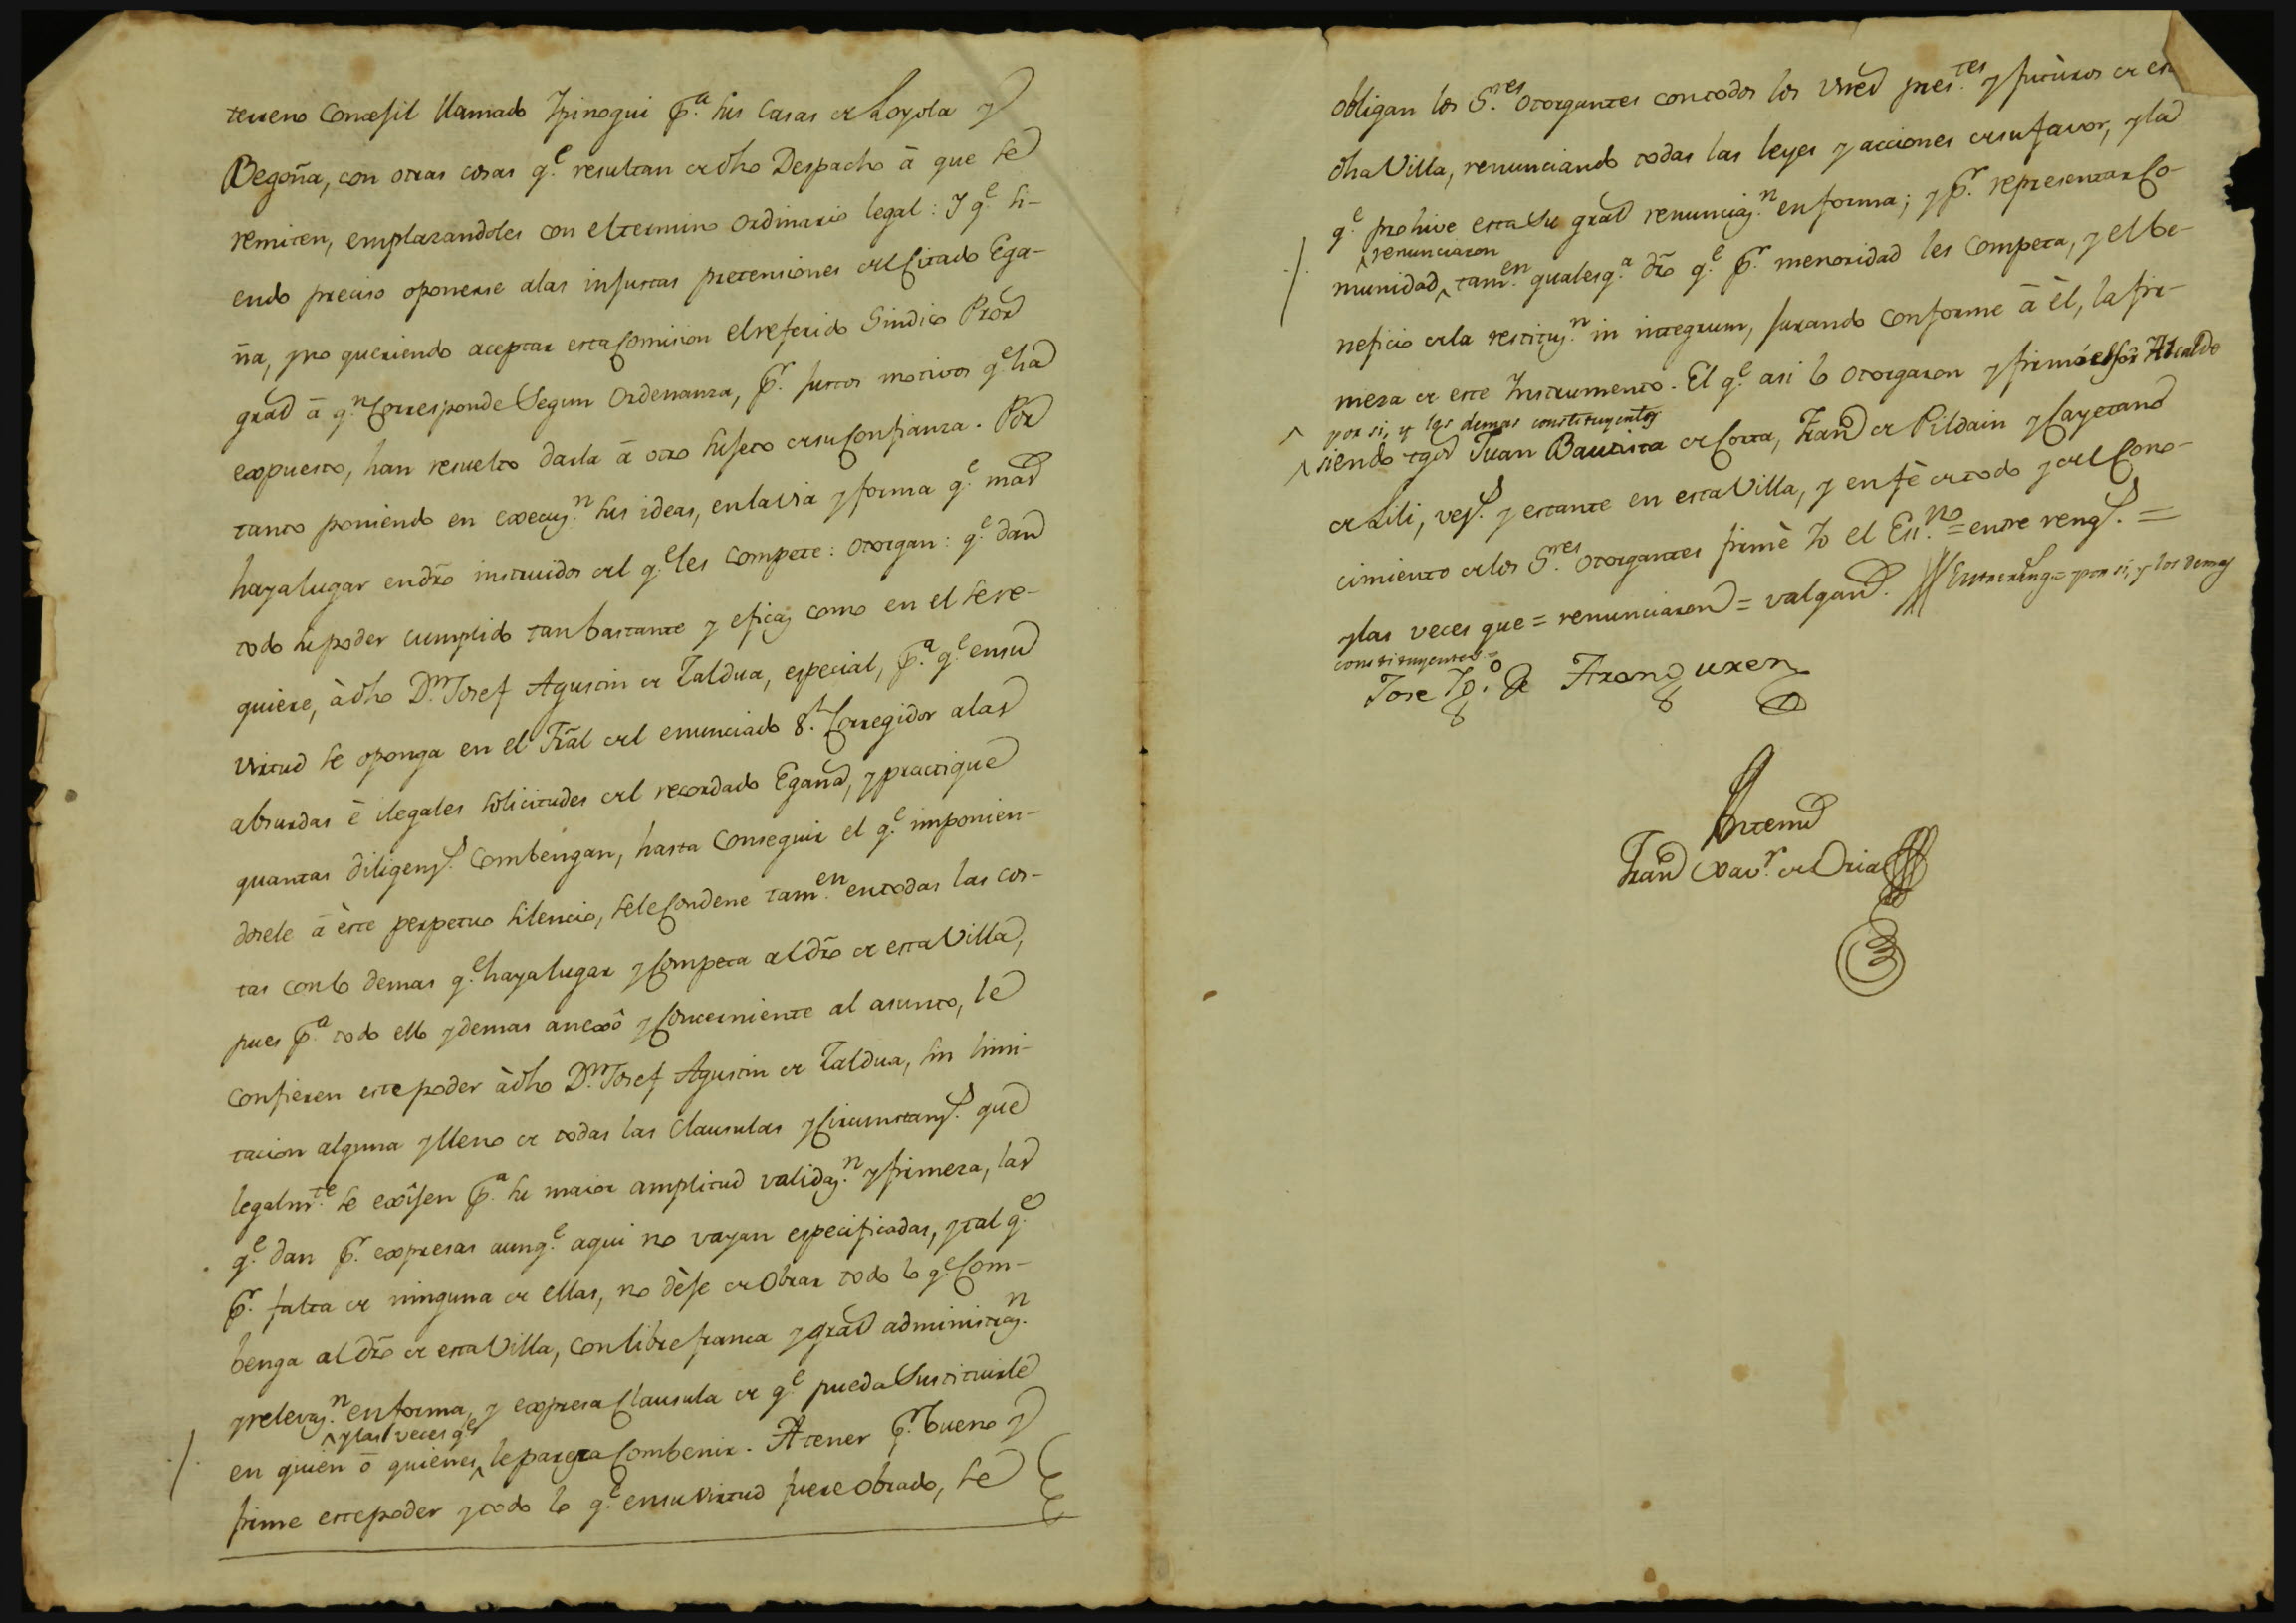 terreno Concejil llamado Ypinogui p.ª sus Casas de Loyola y
Begoña, con otras cosas q.e resultan de dho Despacho à que se
remiten, emplazandoles con el termino ordinario legal: Y q.e si-
endo preciso oponerse alas injustas pretensiones del Citado Ega-
ña, y no queriendo aceptar esta Comision el referido Sindico Pror
gral à q.n Corresponde Segun Ordenanza, p.r justos motivos q.e ha
expuesto, han resuelto darla à otro sujeto de su Confianza. Por
tanto poniendo en execuz.n sus ideas, en la via y forma q.e mas
haya lugar en dro instruidos del q.e les compete: otorgan: q.e dan
todo su poder cumplido tan bastante y eficaz como en el se re-
quiere, à dho D.n Josef Agustin de Zaldua, especial, p.ª q.e en su
virtud se oponga en el Tral del enunciado S.r Corregidor alas
absurdas è ilegales solicitudes del recordado Egaña, y practique
quantas diligenz.s Combengan, hasta Conseguir el q.e imponien-
dosele à èste perpetuo silencio, se le Condene tam.en en todas las cos-
tas con lo demas q.e haya lugar y Competa al dro de esta Villa,
pues p.ª todo ello y demas anexô y Concerniente al asunto, le
confieren este poder à dho D.n Josef Agustin de Zaldua, sin limi-
tacion alguna y lleno de todas las Clausulas y Circunstanz.s que
legalm.te se exîjen p.ª su maior amplitud validaz.n y firmeza, las
q.e dan p.r expresas aunq.e aqui no vayan especificadas, y tal q.e
p.r falta de ninguna de ellas, no dèje de Obrar todo lo q.e Com-
benga al dro de esta Villa, con libre franca y gral administraz.n
y relevaz.n en forma, y expresa Clausula de q.e pueda Sustituirle
^ y las veces q.e
en quien ò quienes ^ le parezca Combenir. A tener p.r bueno y
firme este poder y todo lo q.e en su virtud fuere Obrado, se
obligan los S.res Otorgantes con todos los vnes pres.tes y futùros de esta
dha Villa, renunciando todas las leyes y acciones de su favor, y la
q.e prohive esta Su gral renunciaz.n en forma; y p.r representar Co-
^ renunciaron
munidad ^ tam.en qualesq.a dro q.e p.r menoridad les Competa, y el be-
neficio de la restituz.n in integrum, jurando conforme à èl, la fir-
meza de este Instrumento. El q.e asi lo otorgaron y firmó el Sôr Alcalde
^ por si, y los demas constituyentes
^ siendo tgos Juan Bautista de Cotta, Fran de Pildain y Cayetano
de Lili, vez.s y estante en esta Villa, y en fè de todo y del Cono-
cimiento de los S.res Otorgantes firmè Yo el Es.no = entre rengs. =
y las veces que = renunciaron = valgan. Entrereng.s = por si, y los demas
constituyentes =
Jose Ig.o de Aranguren
Antemi
Fran Xav.r de Oria